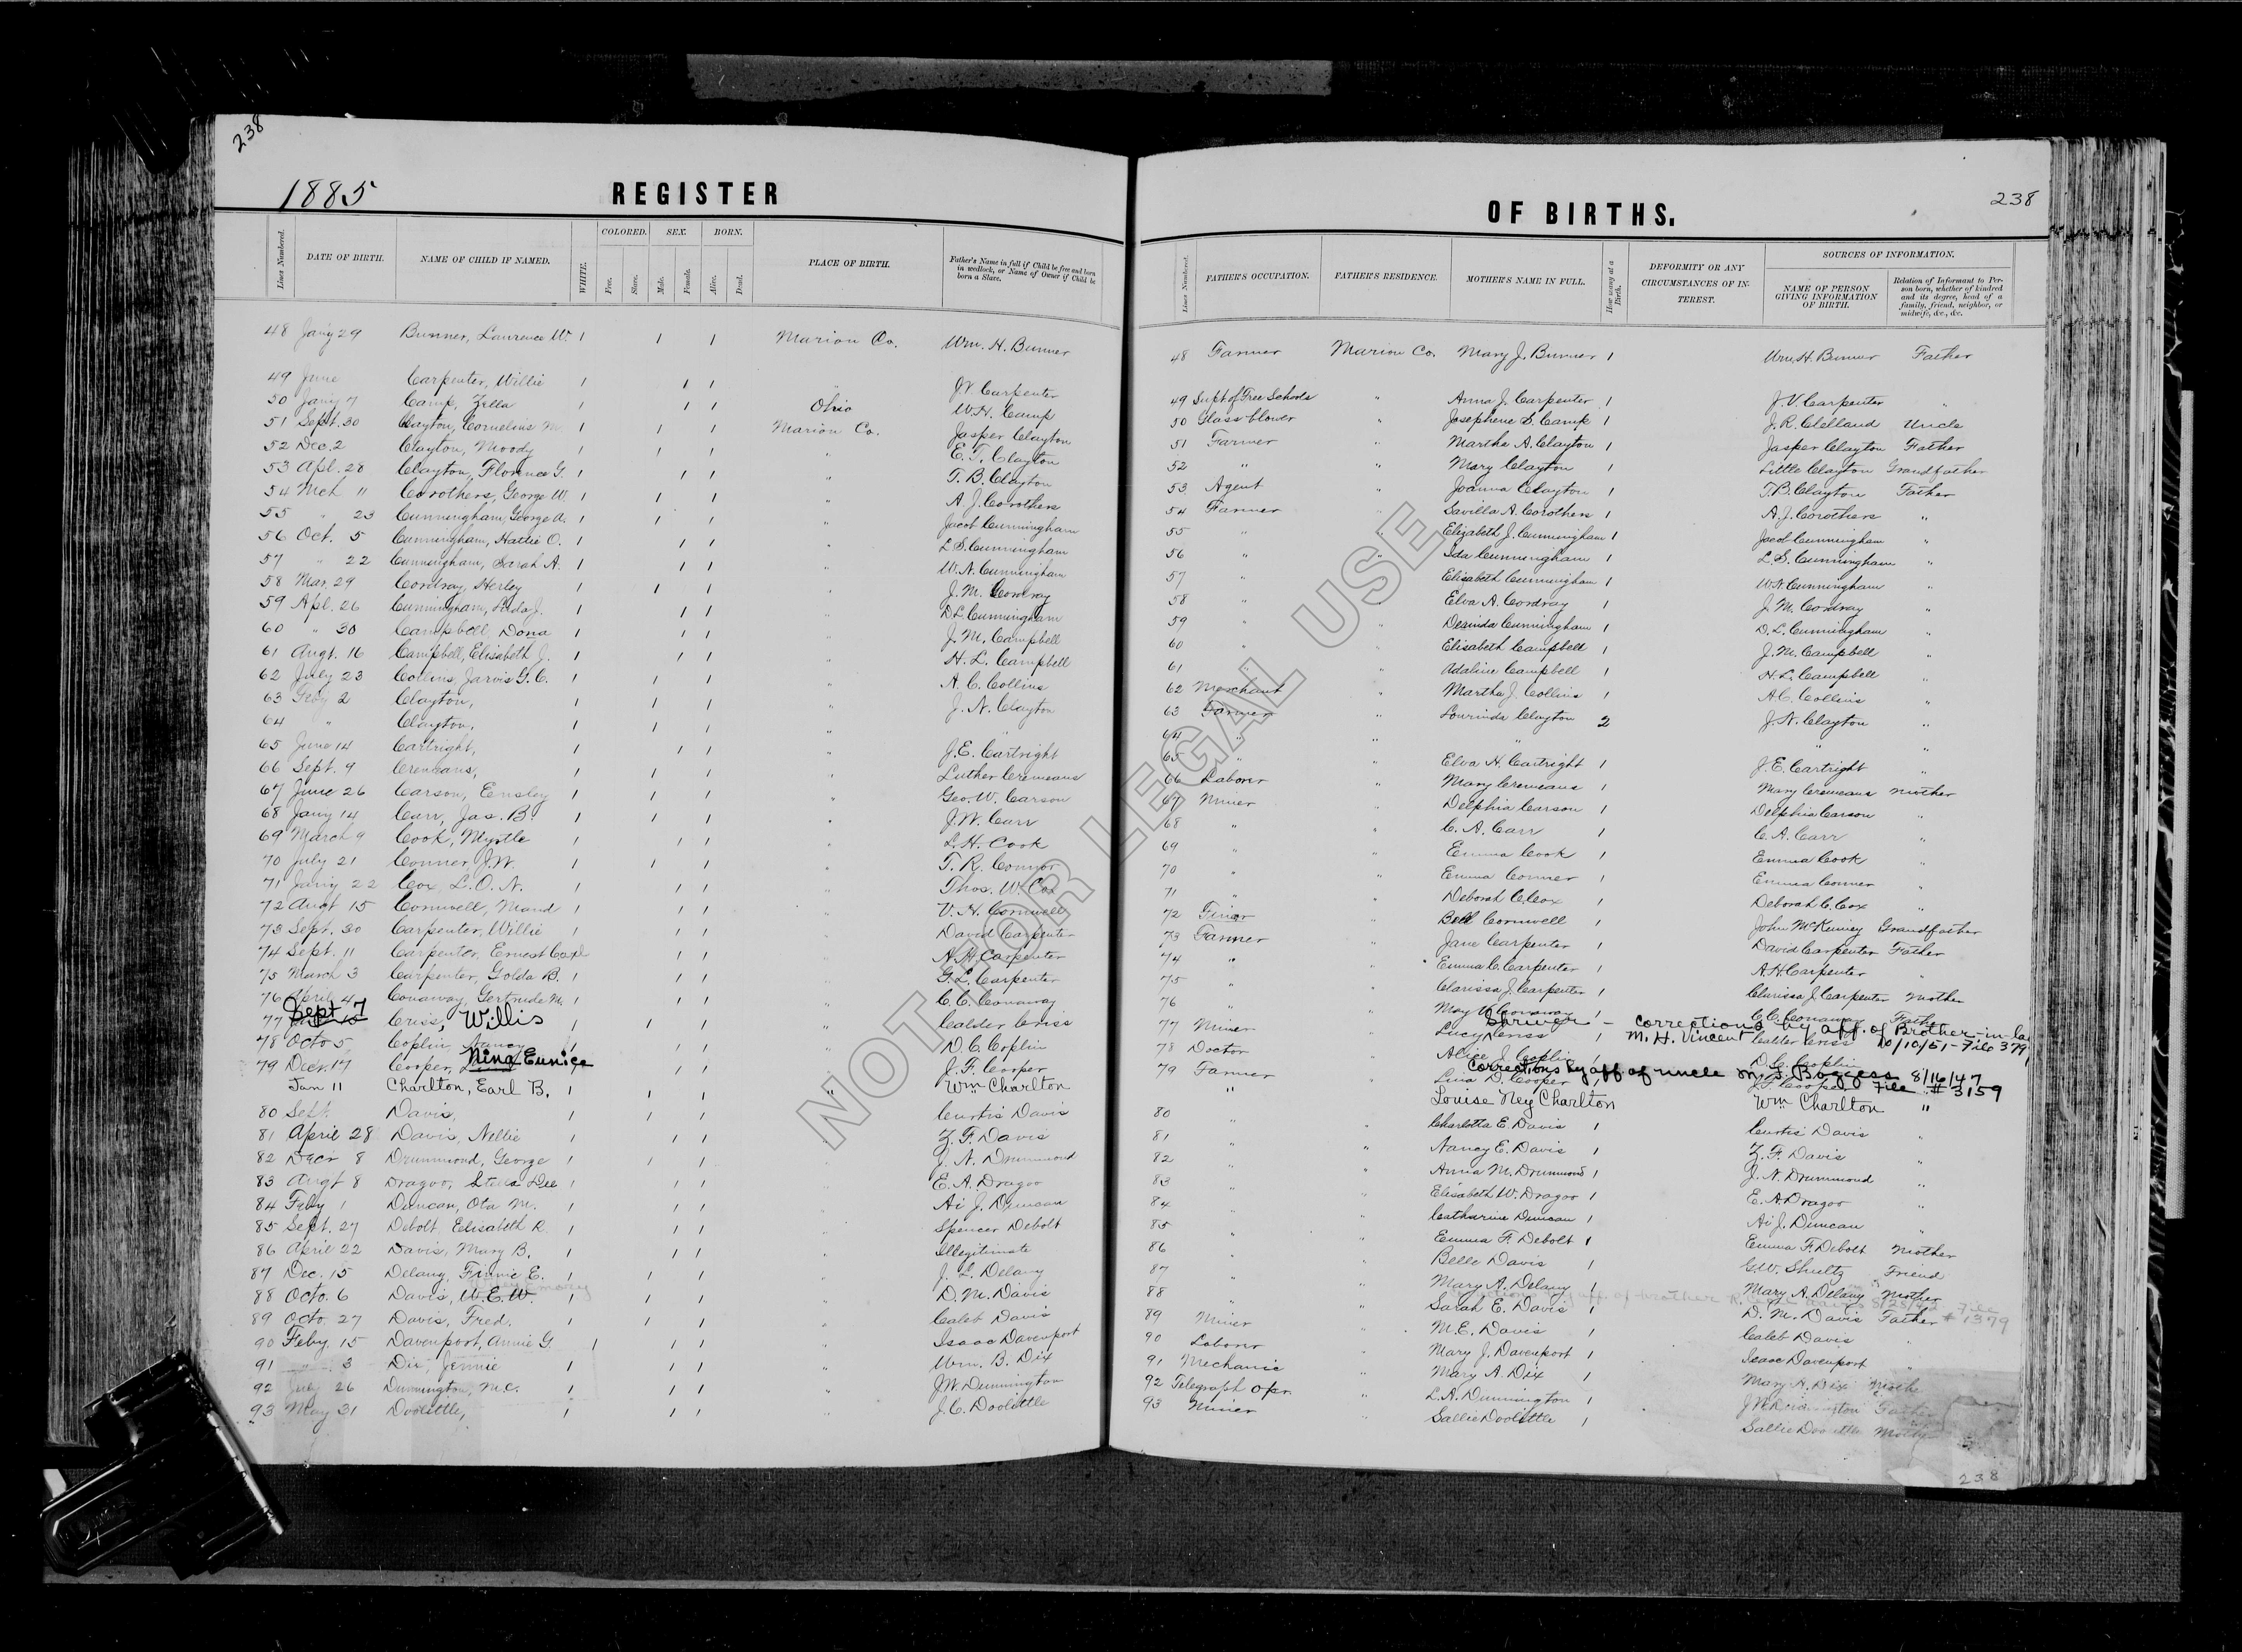 238
1885
REGISTER
Lines Numbered. DATE OF BIRTH. NAME OF CHILD IF NAMED. WHITE. COLORED. Free. Slave. SEX. Male. Female. BORN. Alive. Dead. PLACE OF BIRTH. Father's Name in full if Child be free and born in wedlock, or Name of Owner if Child be born a Slave.
48 Jany 29 Bunner, Laurence W. 1 1 1 Marion Co. Wm. H. Bunner
49 June Carpenter, Willie 1 1 1 " J.V. Carpenter
50 Jany 7 Camp, Zella 1 1 1 Ohio W.H. Camp
51 Sept. 30 Clayton, Cornelius M. 1 1 1 Marion Co. Jasper Clayton
52 Dec. 2 Clayton, Moody 1 1 1 " E. T. Clayton
53 Apl. 28 Clayton, Florence G. 1 1 1 " T. B. Clayton
54 Mch 11 Corothers, George W. 1 1 1 " A. J. Corothers
55 " 23 Cunningham, George A. 1 1 1 " Jacob Cunningham
56 Oct. 5 Cunningham, Hattie O. 1 1 1 " L. S. Cunningham
57 " 22 Cunningham, Sarah A. 1 1 1 " W. N. Cunningham
58 Mar. 29 Cordray, Herley 1 1 1 " J. M. Cordray
59 Apl. 26 Cunningham, J. 1 1 1 " D.L. Cunningham
60 " 30 Campbell, Dona 1 1 1 " J. M. Campbell
61 Augt. 16 Campbell, Elisabeth J. 1 1 1 " H. L. Campbell
62 July 23 Collins, Jarvis G. C. 1 1 1 " A. C. Collins
63 2 Clayton, 1 1 1 " J. N. Clayton
64 " Clayton, 1 1 1 " "
65 June 14 Cartright, 1 1 1 " J. E. Cartright
66 Sept. 9 Cremeans, 1 1 1 " Luther Cremeans
67 June 26 Carson, Ensley 1 1 1 " Geo. W. Carson
68 Jany 14 Carr, Jas. B. 1 1 1 " J. W. Carr
69 March 9 Cook, Myrtle 1 1 1 " L. H. Cook
70 July 21 Conner, J.W. 1 1 1 " T. R. Connor
71 Jany 22 Cox, L. O. N. 1 1 1 " Thos. W. Cox
72 Augt 15 Cornwell, Maud 1 1 1 " V. H. Cornwell
73 Sept. 30 Carpenter, Willie 1 1 1 " David Carpenter
74 Sept. 11 Carpenter, Ernest Carl 1 1 1 " A. H. Carpenter
75 March 3 Carpenter, Golda B. 1 1 1 " G. L. Carpenter
76 April 4 Conaway, Gertrude M. 1 1 1 " C. C. Conaway
77 Sept 7 Criss, Willis 1 1 1 " Calder Criss
78 Octo 5 Coplin, Nancy 1 1 1 " D. C. Coplin
79 Decr. 17 Cooper, Nina Eunice 1 1 1 " J. F. Cooper
Jan 11 Charlton, Earl B. 1 1 1 " Wm Charlton
80 Sept. Davis, 1 1 1 " Curtis Davis
81 April 28 Davis, Nellie 1 1 1 " Z. F. Davis
82 Decr 8 Drummond, George 1 1 1 " J. N. Drummond
83 Augt 8 Dragoo, Stella Dee 1 1 1 " E. A. Dragoo
84 Feby 1 Duncan, Ota M. 1 1 1 " Ai J. Duncan
85 Sept. 27 Debolt, Elisabeth R. 1 1 1 " Spencer Debolt
86 April 22 Davis, Mary B. 1 1 1 " Illegitimate
87 Dec. 15 Delany, Finnie E. 1 1 1 " J. L. Delany
88 Octo. 6 Davis, W. E. W. 1 1 1 " D. M. Davis
89 Octo. 27 Davis, Fred. 1 1 1 " Caleb Davis
90 Feby. 15 Davenport, Annie G. 1 1 1 " Isaac Davenport
91 " 3 Dix, Jennie 1 1 1 " Wm. B. Dix
92 July 26 Dunnington, M.C. 1 1 1 " J.W. Dunnington
93 May 31 Doolittle, 1 1 1 " J. C. Doolittle
238
OF BIRTHS.
Lines Numbered. FATHER'S OCCUPATION. FATHER'S RESIDENCE. MOTHER'S NAME IN FULL. How many at a Birth. DEFORMITY OR ANY CIRCUMSTANCES OF INTEREST. SOURCES OF INFORMATION. NAME OF PERSON GIVING INFORMATION OF BIRTH. Relation of Informant to Person born, whether of kindred and its degree, head of a family, friend, neighbor, or midwife, &c., &c.
48 Farmer Marion Co. Mary J. Bunner 1 Wm. H. Bunner Father
49 Supt of Free Schools " Anna J. Carpenter 1 J. V. Carpenter "
50 Glass blower " Josephene S. Camp 1 J. R. Clelland Uncle
51 Farmer " Martha A. Clayton 1 Jasper Clayton Father
52 " " Mary Clayton 1 Little Clayton Grandfather
53 Agent " Joanna Clayton 1 T.B. Clayton Father
54 Farmer " Savilla A. Corothers 1 A. J. Corothers "
55 " " Elizabeth J. Cunningham 1 Jacob Cunningham "
56 " " Ida Cunningham 1 L. S. Cunningham "
57 " " Elisabeth Cunningham 1 W.N. Cunningham "
58 " " Elva A. Cordray 1 J. M. Cordray "
59 " " Dorinda Cunningham 1 D. L. Cunningham "
60 " " Elisabeth Campbell 1 J. M. Campbell "
61 " " Adaline Campbell 1 H. L. Campbell "
62 Merchant " Martha J. Collins 1 A.C. Collins "
63 Farmer " Lourinda Clayton 2 J. N. Clayton "
64 " " " " "
65 " " Elva H. Cartright 1 J. E. Cartright "
66 Laborer " Mary Cremeans 1 Mary Cremeans Mother
67 Miner " Delphia Carson 1 Delphia Carson "
68 " " C. A. Carr 1 C. A. Carr "
69 " " Emma Cook 1 Emma Cook "
70 " " Emma Conner 1 Emma Conner "
71 " " Deborah C. Cox 1 Deborah C. Cox "
72 " Bell Cornwell 1 John McKinney Grandfather
73 Farmer " Jane Carpenter 1 David Carpenter Father
74 " " Emma C. Carpenter 1 A.H. Carpenter "
75 " " Clarissa J. Carpenter 1 Clarissa J. Carpenter Mother
76 " " May V. Conaway 1 C. C. Conaway Father
77 Miner " Lucy Criss 1 - corrections by aff. of Brother-in-law M. H. Vincent 10/10/51 - File 379 Calder Criss
78 Doctor " Alice J. Coplin 1 D. C. Coplin
79 Farmer " Lina D. Cooper 1 Corrections by aff. of uncle M. F. Boggess 8/16/47 File # 3159 J. F. Cooper
" Louise Ney Charlton Wm Charlton "
80 " " Charlotta E. Davis 1 Curtis Davis "
81 " " Nancy E. Davis 1 Z. F. Davis "
82 " " Anna M. Drummond 1 J. N. Drummond "
83 " " Elisabeth W. Dragoo 1 E. A. Dragoo "
84 " " Catharine Duncan 1 Ai J. Duncan "
85 " " Emma F. Debolt 1 Emma F. Debolt Mother
86 " " Belle Davis 1 G.W. Shultz Friend
87 " " Mary A. Delany 1 Mary A. Delany Mother
88 " " Sarah E. Davis 1 D. M. Davis Father # 1379
89 Miner " M. E. Davis 1 Caleb Davis "
90 Laborer " Mary J. Davenport 1 Isaac Davenport "
91 Mechanic " Mary A. Dix 1 Mary A. Dix Mother
92 Telegraph Opr. " L. A. Dunnington 1 J.W. Dunnington Father
93 Miner " Sallie Doolittle 1 Sallie Doolittle Mother
238
NOT FOR LEGAL USE